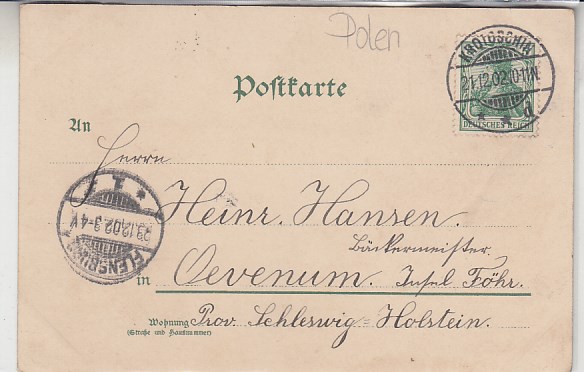 Polen
KROTOSCHIN
21.12.02.10-11V.
* * d
DEUTSCHES REICH
Postkarte
An
Herrn
Heinr. Hansen.
Bäckermeister.
in Oevenum. Insel Föhr.
Wohnung Prov. Schleswig-Holstein.
(Straße und Hausnummer)
* 1 *
23.12.02.3-4V.
FLENSBURG